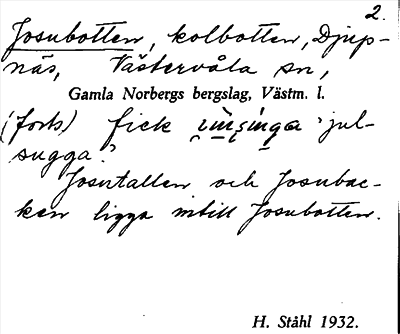 2.
Josubotten, kolbotten, Djup-
näs, Västervåla sn,
Gamla Norbergs bergslag, Västm. l.
(forts) fick 'jul-
sugga'.
Josutallen och Josubac-
ken ligga intill Josubotten.
H. Ståhl 1932.